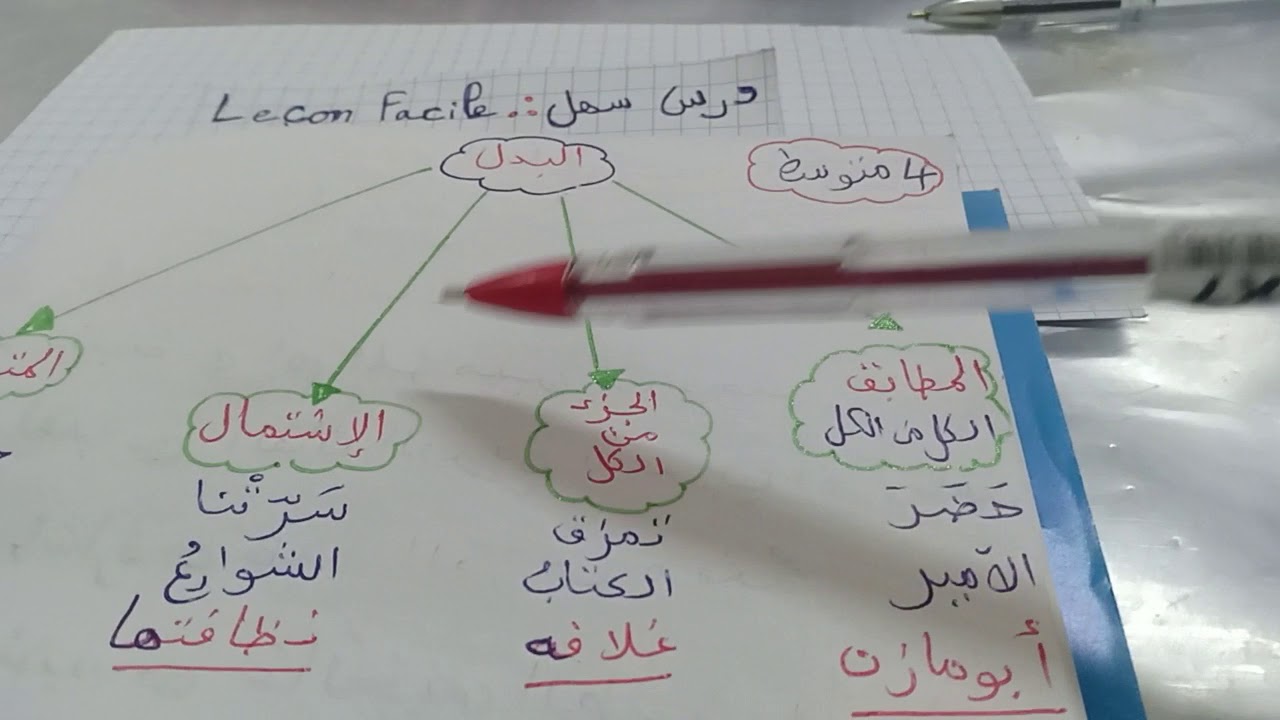 درس سهل :. Leçon Facile
4 متوسط
البدل
المطابق
الكل من الكل
حَضَرَ
الأمير
أبو مازن
الجزء
من
الكل
تمزق
الكتابُ
غلافه
الإشتمال
سَرّتْنا
الشوارعُ
نظافتها